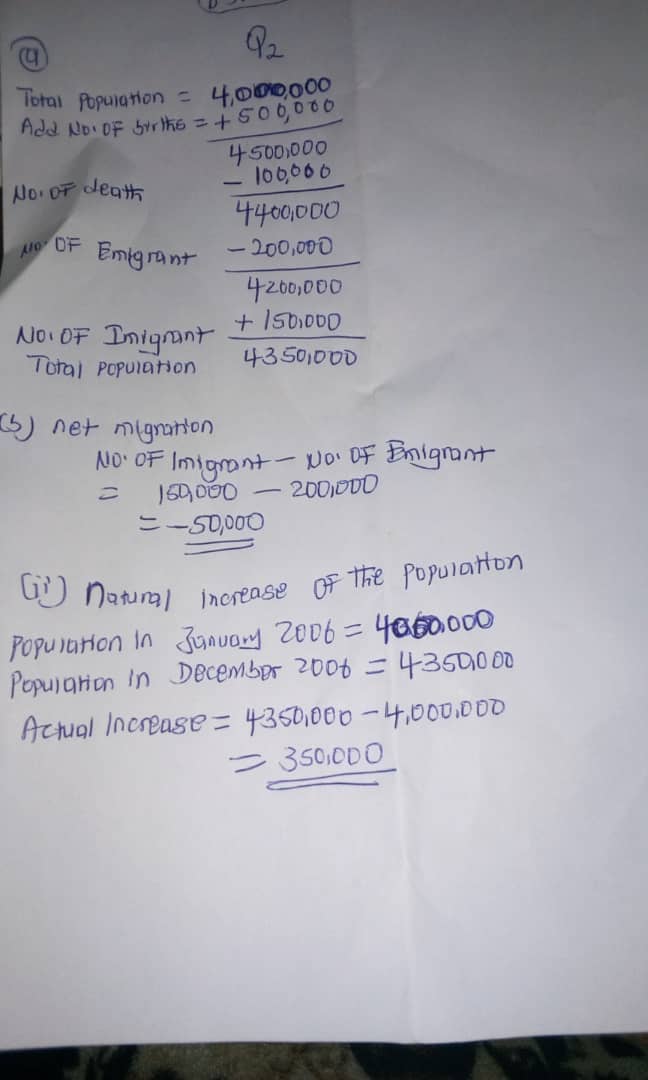 (a) Q2
Total Population = 4,000,000
Add No. OF births = + 500,000
4500,000
No. OF death - 100,000
4400,000
No. OF Emigrant - 200,000
4200,000
No. OF Imigrant + 150,000
Total Population 4350,000
(b) net migration
No. OF Imigrant - No. OF Emigrant
= 150,000 - 200,000
= -50,000
(ii) Natural increase OF the Population
Population In January 2006 = 4000,000
Population In December 2006 = 4350,000
Actual Increase = 4350,000 - 4,000,000
= 350,000